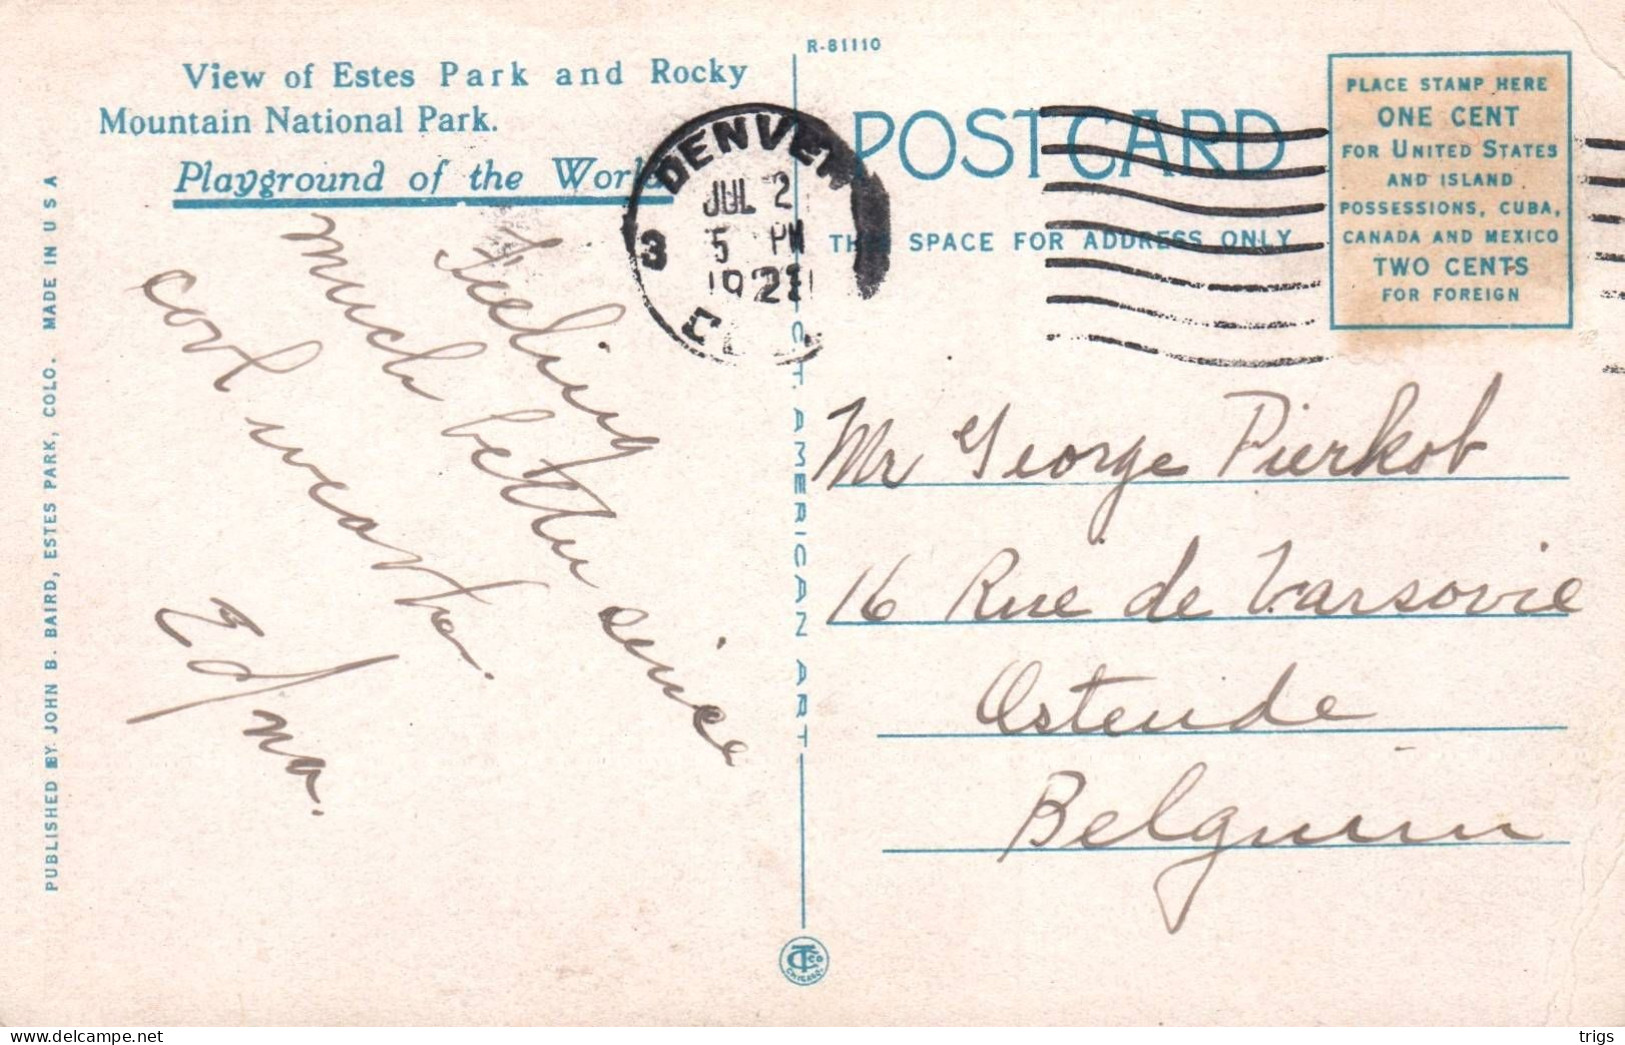 R-81110
View of Estes Park and Rocky
Mountain National Park.
Playground of the World
POST CARD
THIS SPACE FOR ADDRESS ONLY
PLACE STAMP HERE
ONE CENT
FOR UNITED STATES
AND ISLAND
POSSESSIONS, CUBA,
CANADA AND MEXICO
TWO CENTS
FOR FOREIGN
DENVER
JUL 2
5 PM
3
Feeling
much better since
cool weather.
Edna.
Mr George Pierkot
16 Rue de Varsovie
Ostende
Belgium
PUBLISHED BY JOHN B. BAIRD, ESTES PARK, COLO. MADE IN U S A
C.T. AMERICAN ART
CHICAGO
trigs